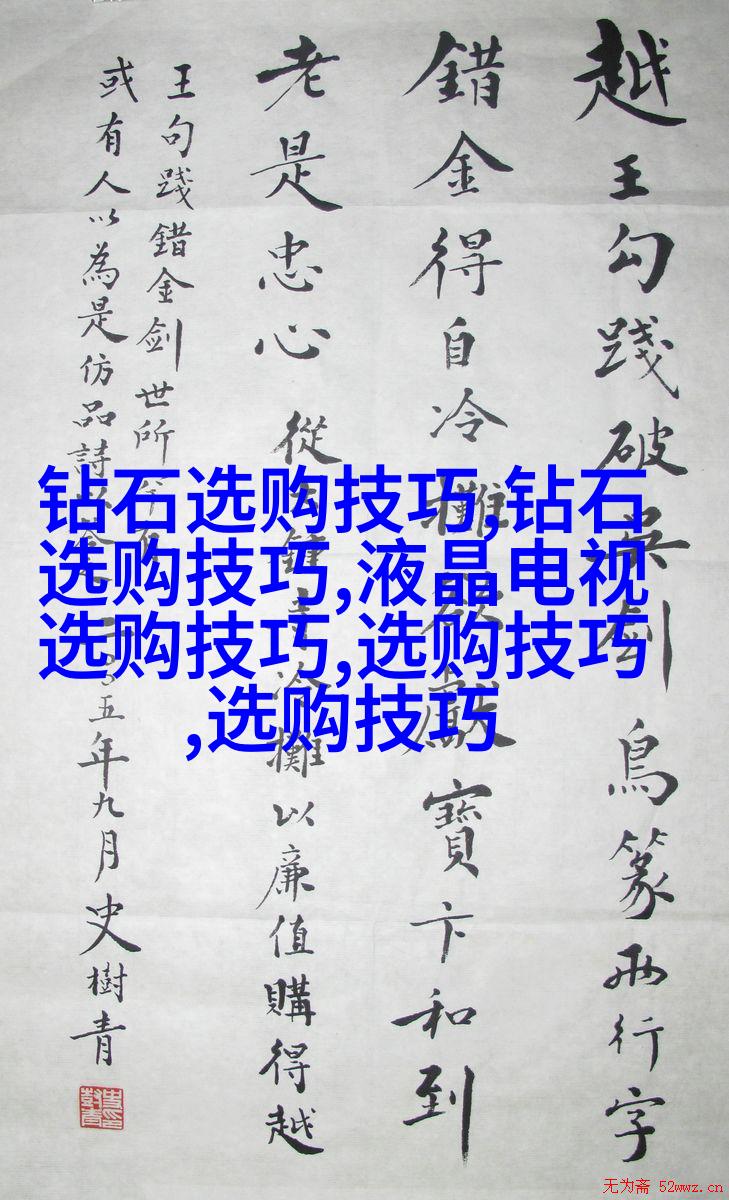 越王勾踐破吳剑鳥篆兩行字
錯金得自冷攤獻寶卞和到
老是忠心 從鐘寺冷攤以廉值購得越
王句踐錯金剑世所罕
或有人以為是仿品詩二〇〇五年九月史樹青
钻石选购技巧,钻石
选购技巧,液晶电视
选购技巧,选购技巧
,选购技巧
无为斋 52wwz.cn